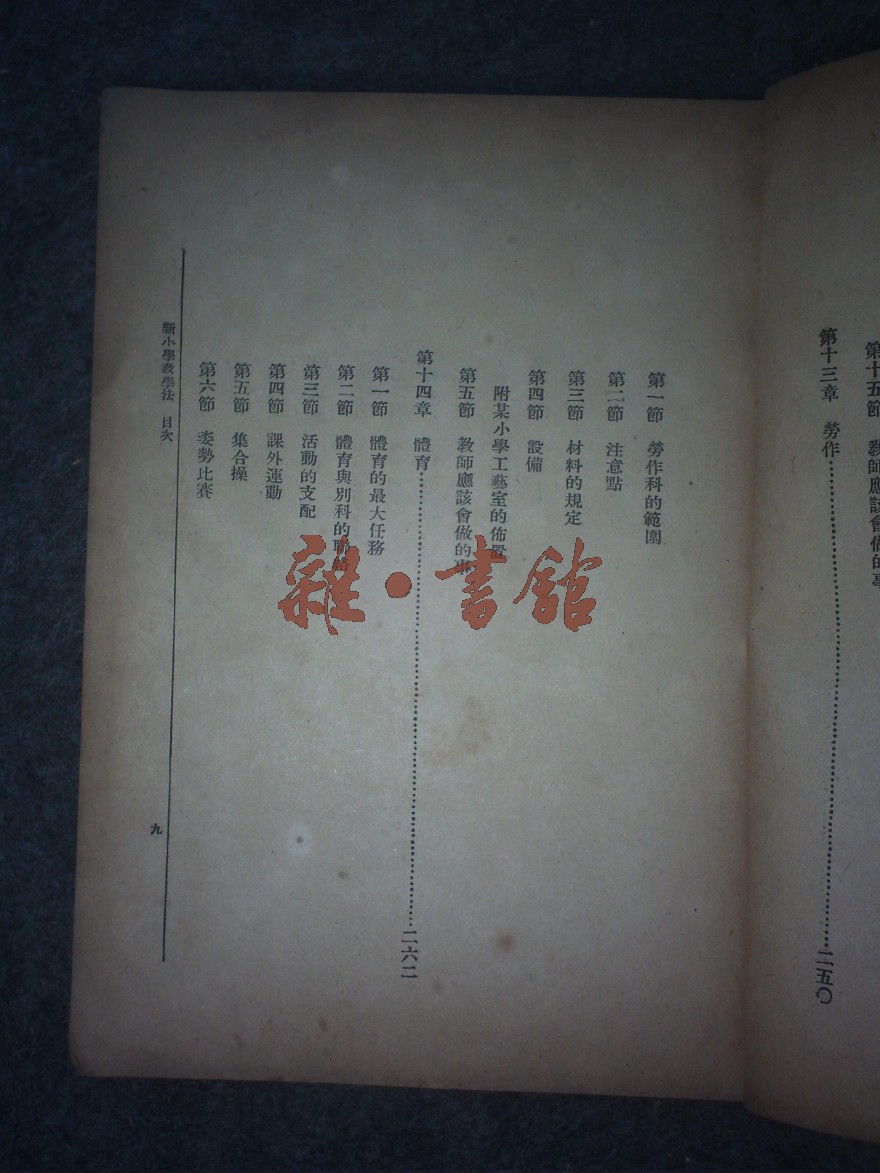 第十五節　教師應該會做的事
第十三章　勞作……二五〇
第一節　勞作科的範圍
第二節　注意點
第三節　材料的規定
第四節　設備
附某小學工藝室的佈置
第五節　教師應該會做的事
第十四章　體育……二六二
第一節　體育的最大任務
第二節　體育與別科的聯絡
第三節　活動的支配
第四節　課外運動
第五節　集合操
第六節　姿勢比賽
新小學教學法　目次
九
雜·書館